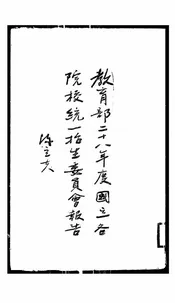 教育部二十八年度國立各
院校統一招生委員會報告
陳立夫